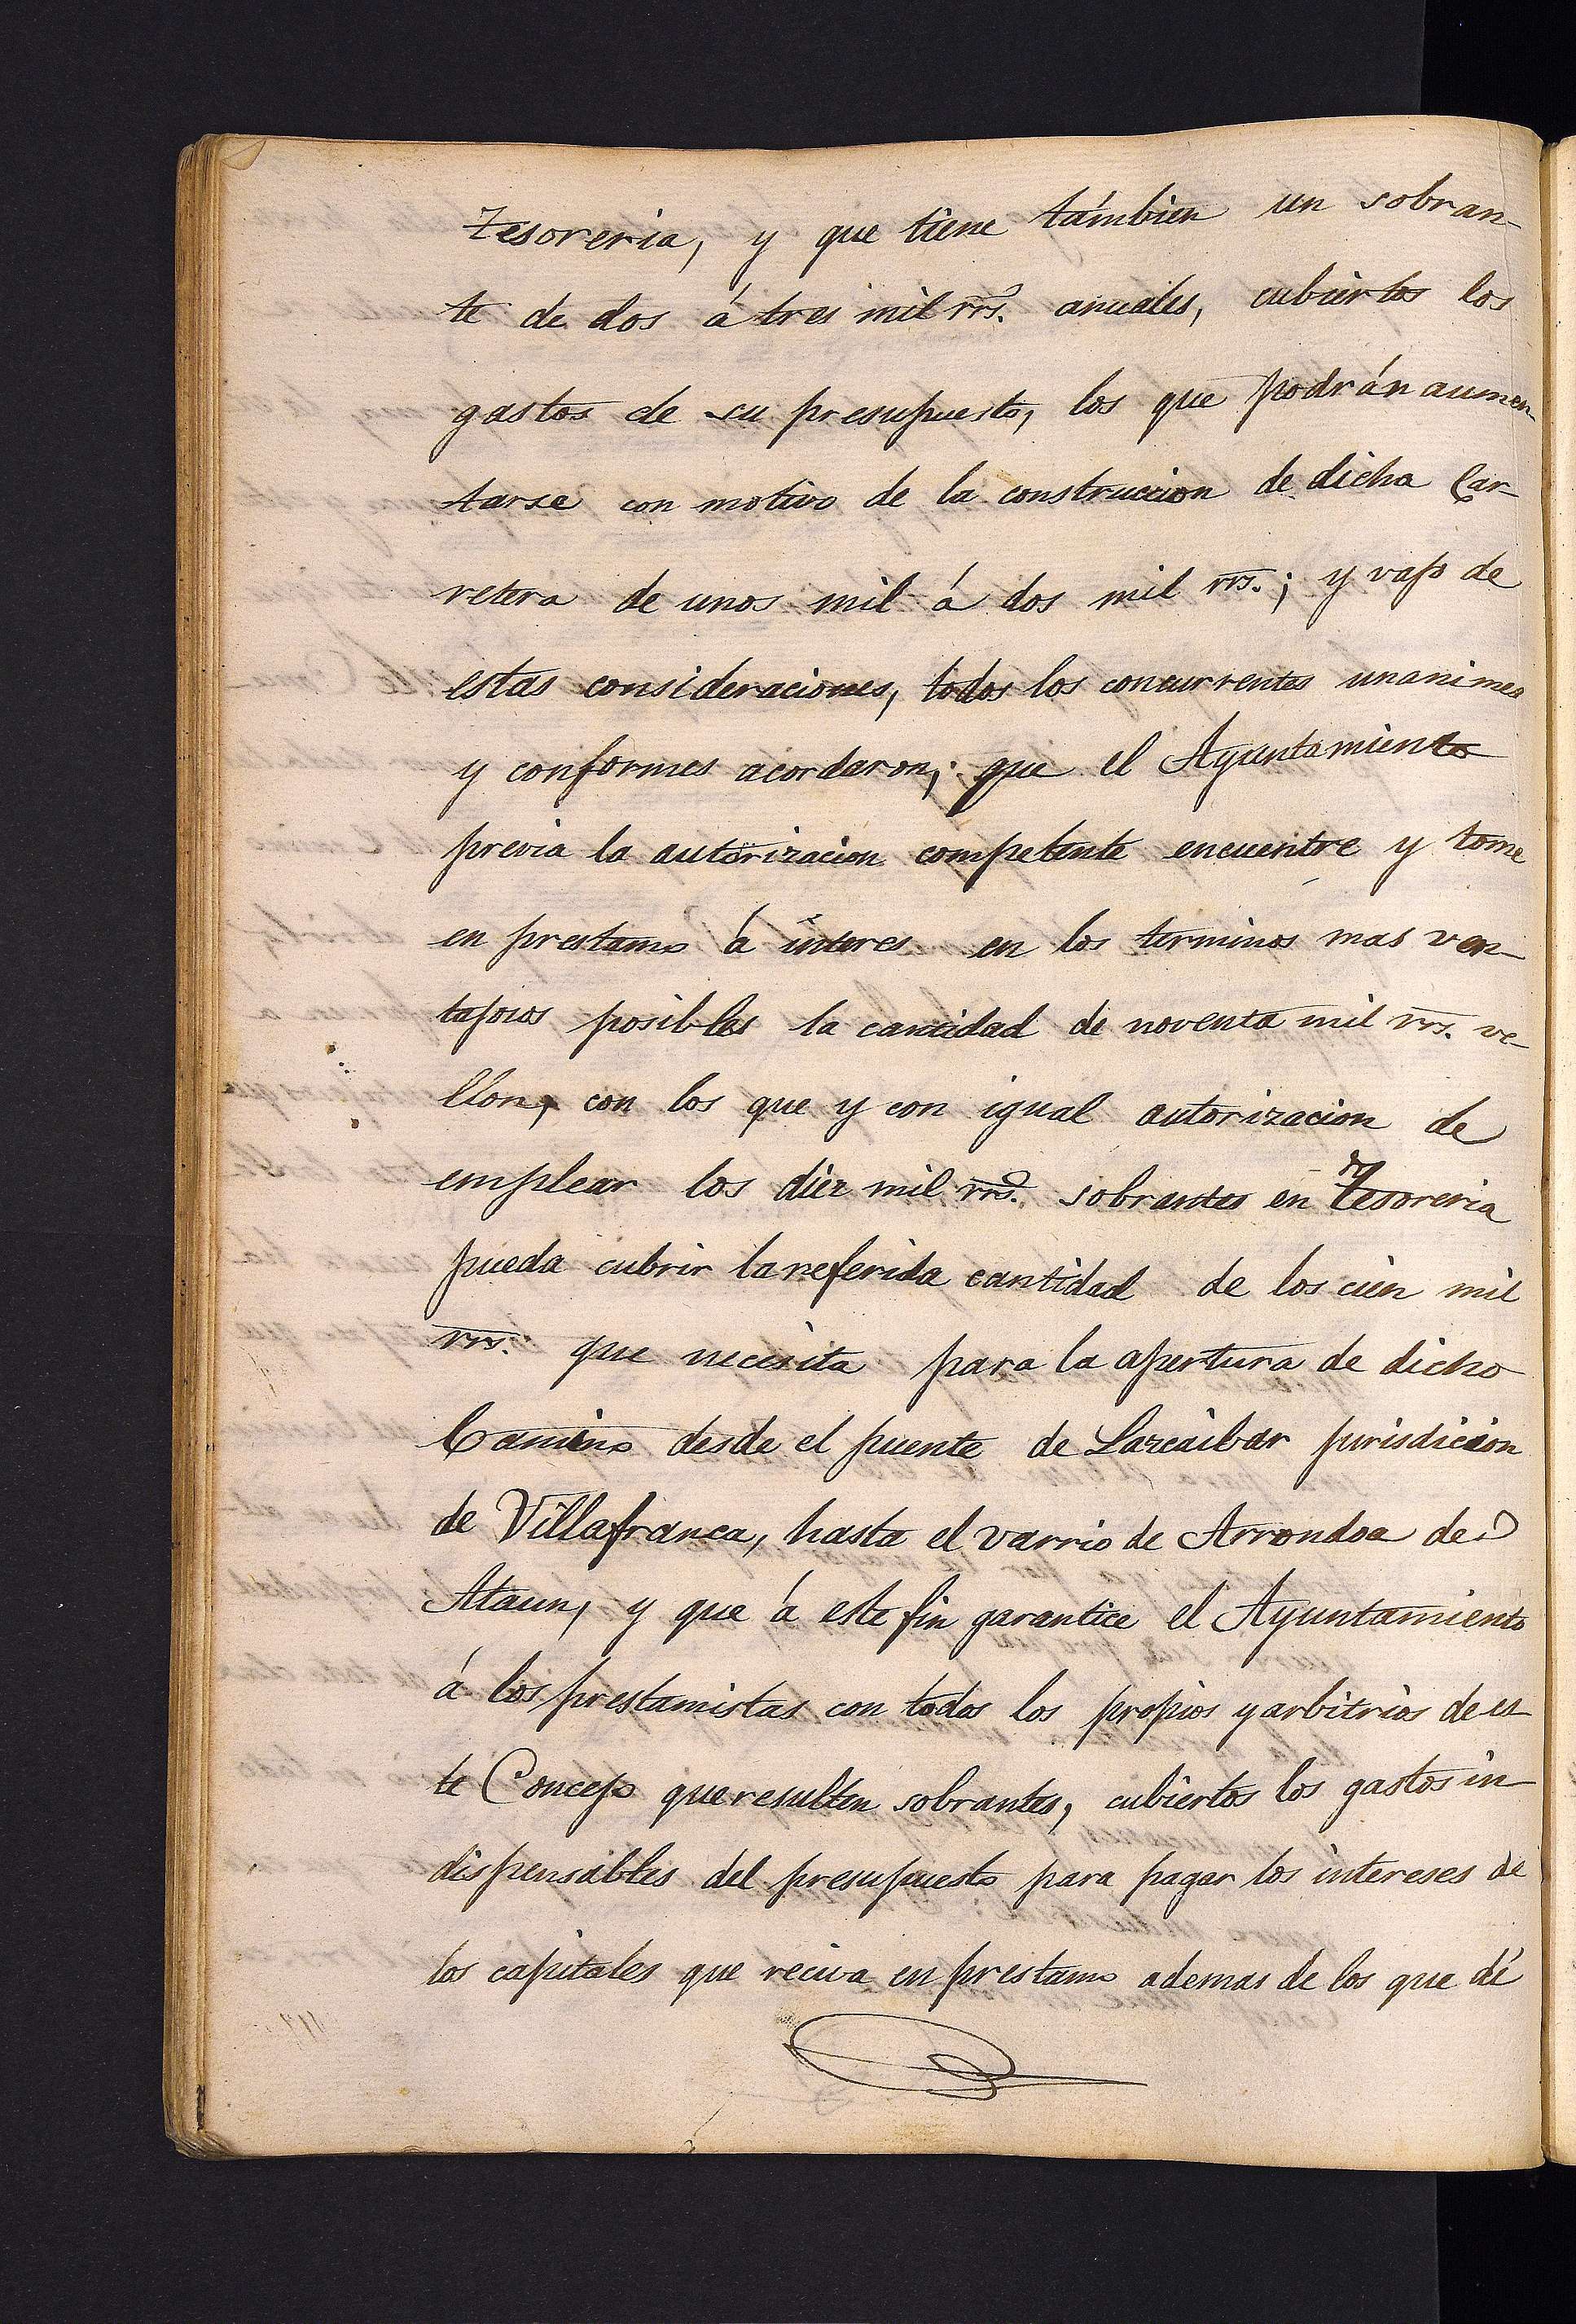 Tesoreria, y que tiene támbien un sobran-
te de dos á tres mil rrs. anuales, cubiertos los
gastos de su presupuesto, los que podrán aumen-
tarse con motivo de la construccion de dicha Car-
retera de unos mil á dos mil rrs.; y vajo de
estas consideraciones, todos los concurrentes unanimes
y conformes acordaron; que el Ayuntamiento
previa la autorizacion competente encuentre y tome
en prestamo á interes en los terminos mas ven-
tajosos posibles la cantidad de noventa mil rrs. ve-
llon, con los que y con igual autorizacion de
emplear los diez mil rrs. sobrantes en Tesoreria
pueda cubrir la referida cantidad de los cien mil
rrs. que necesita para la apertura de dicho
Camino desde el puente de Lazcaibar jurisdicion
de Villafranca, hasta el varrio de Arrondoa de
Ataun, y que á este fin garantice el Ayuntamiento
á los prestamistas con todos los propios y arbitrios de es-
te Concejo que resulten sobrantes, cubiertos los gastos in-
dispensables del presupuesto para pagar los intereses de
los capitales que reciva en prestamo ademas de los que dé